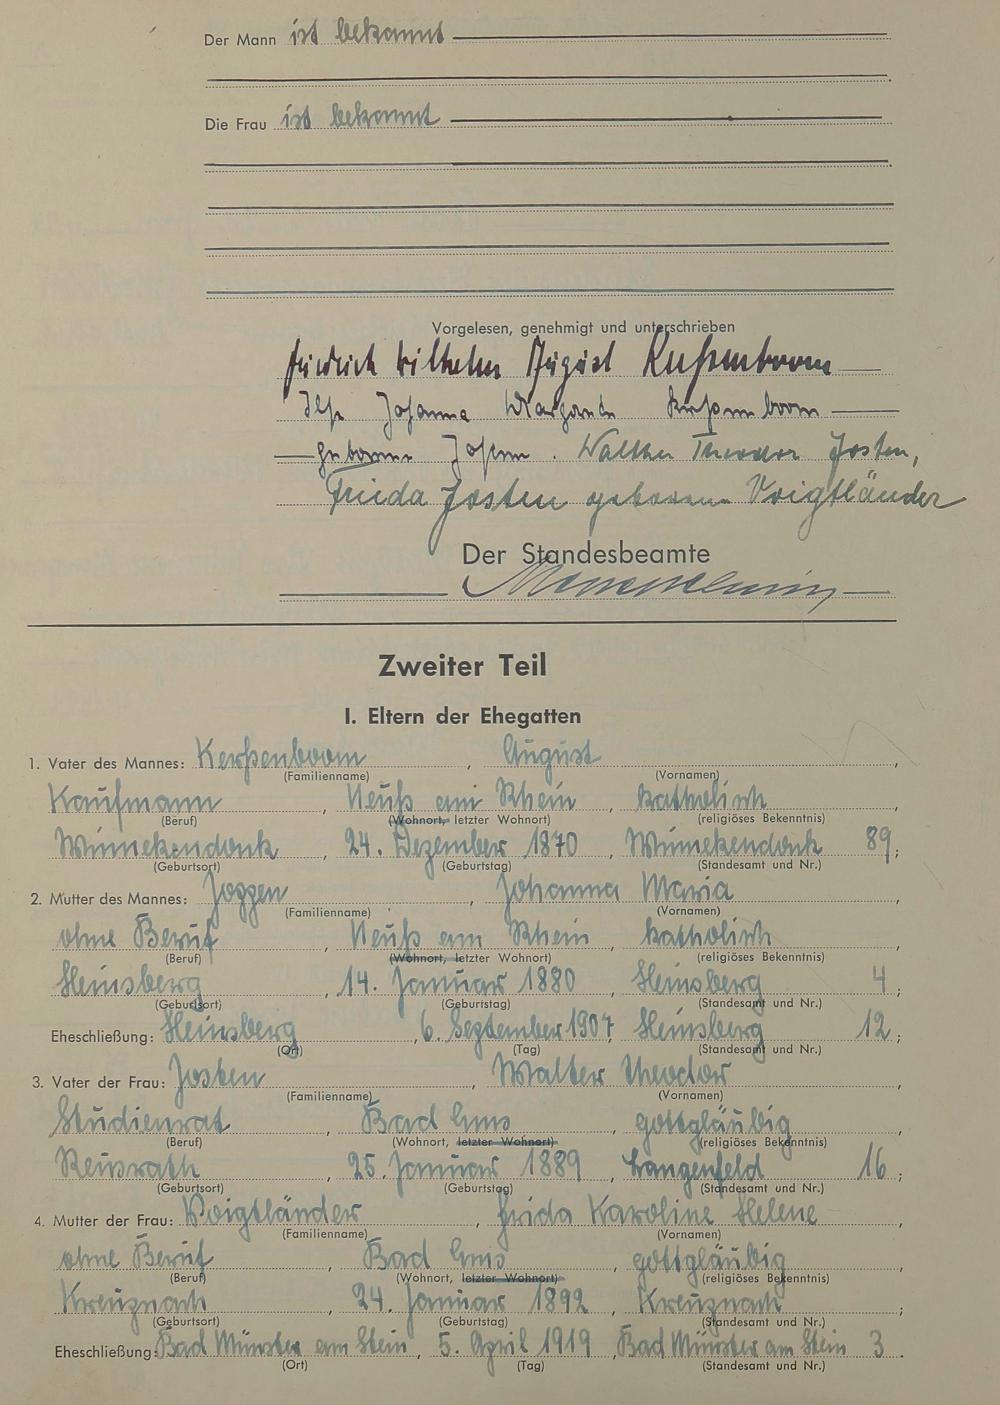 Der Mann ist bekannt
Die Frau ist bekannt
Vorgelesen, genehmigt und unterschrieben
Friedrich Wilhelm August Kerßenboom
Ilse Johanna Kerßenboom
geborene Josten. Walther Theodor Josten,
Frieda Josten geborene Voigtländer
Der Standesbeamte
Zweiter Teil
I. Eltern der Ehegatten
1. Vater des Mannes: Kerßenboom, August
(Familienname) (Vornamen)
Kaufmann, Neuß am Rhein, katholisch,
(Beruf) (Wohnort, letzter Wohnort) (religiöses Bekenntnis)
Winnekendonk, 24. Dezember 1870, Winnekendonk 89;
(Geburtsort) (Geburtstag) (Standesamt und Nr.)
2. Mutter des Mannes: Joggen, Johanna Maria,
(Familienname) (Vornamen)
ohne Beruf, Neuß am Rhein, katholisch,
(Beruf) (Wohnort, letzter Wohnort) (religiöses Bekenntnis)
Heinsberg, 14. Januar 1880, Heinsberg 4;
(Geburtsort) (Geburtstag) (Standesamt und Nr.)
Eheschließung: Heinsberg, 6. September 1907, Heinsberg 12;
(Ort) (Tag) (Standesamt und Nr.)
3. Vater der Frau: Josten, Walter Theodor,
(Familienname) (Vornamen)
Studienrat, Bad Ems, gottgläubig,
(Beruf) (Wohnort, letzter Wohnort) (religiöses Bekenntnis)
Reusrath, 25. Januar 1889, Langenfeld 16;
(Geburtsort) (Geburtstag) (Standesamt und Nr.)
4. Mutter der Frau: Voigtländer, Frida Karoline Helene,
(Familienname) (Vornamen)
ohne Beruf, Bad Ems, gottgläubig,
(Beruf) (Wohnort, letzter Wohnort) (religiöses Bekenntnis)
Kreuznach, 24. Januar 1892, Kreuznach;
(Geburtsort) (Geburtstag) (Standesamt und Nr.)
Eheschließung: Bad Münster am Stein, 5. April 1919, Bad Münster am Stein 3.
(Ort) (Tag) (Standesamt und Nr.)